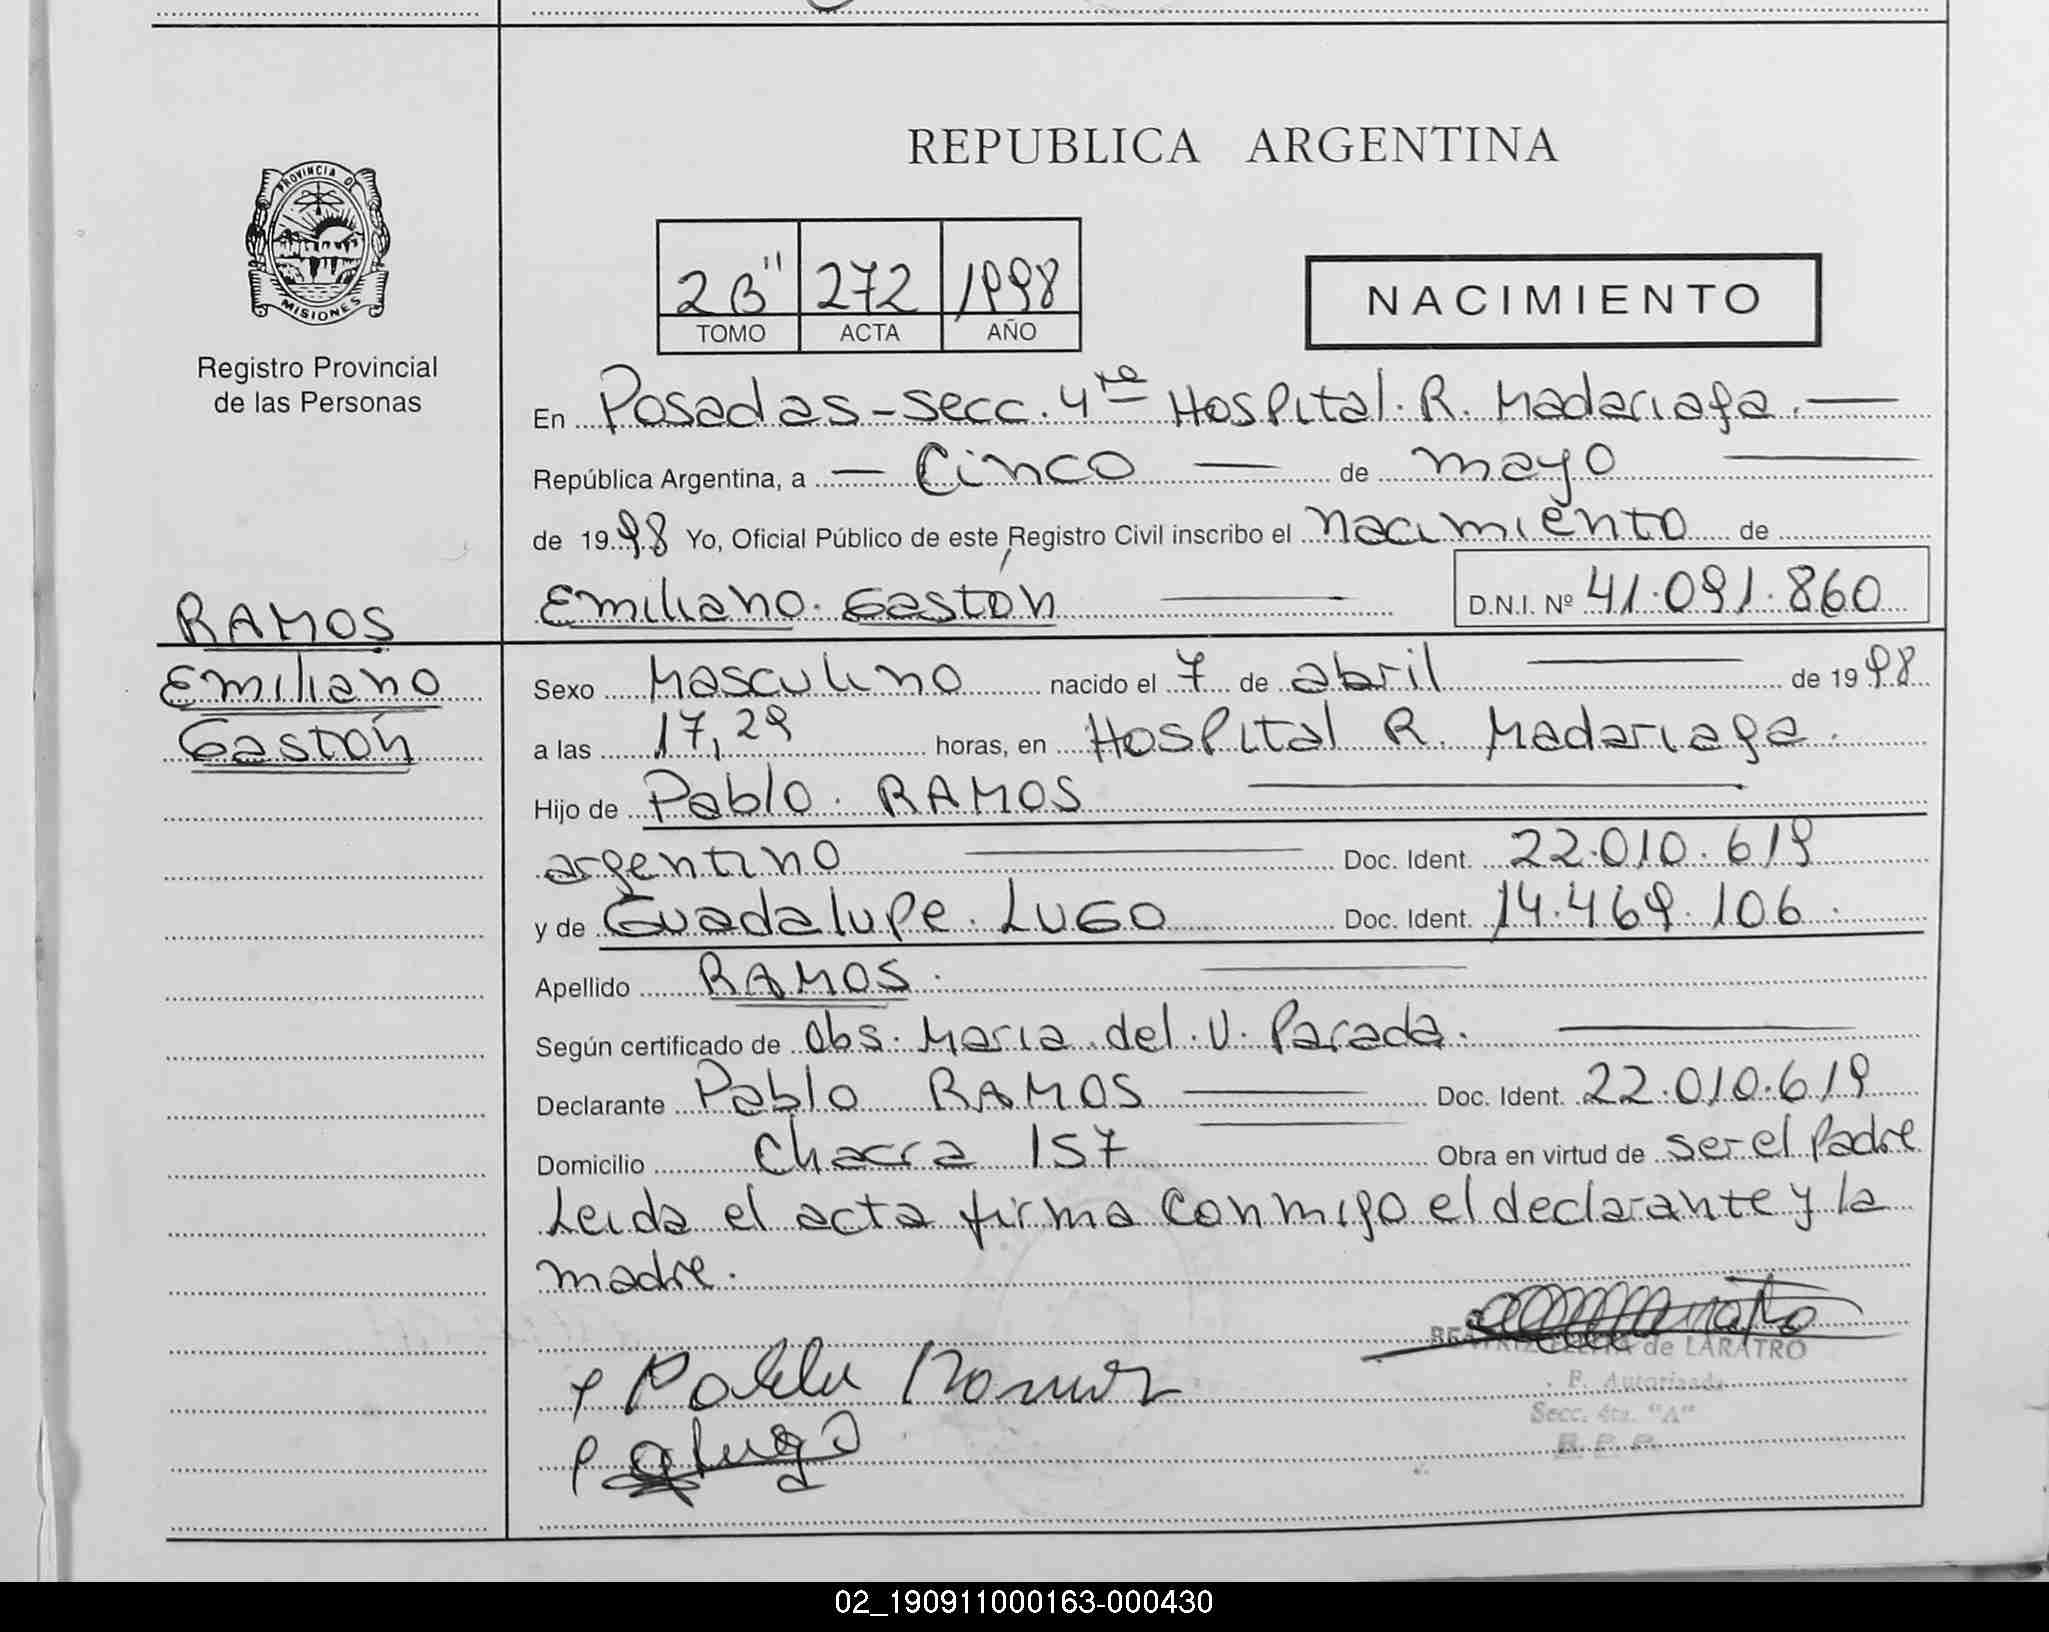 REPUBLICA ARGENTINA
PROVINCIA DE
MISIONES
Registro Provincial
de las Personas
2B" 272 1998
TOMO ACTA AÑO
NACIMIENTO
En Posadas - secc. 4ta Hospital. R. Madariaga. —
República Argentina, a — Cinco — de mayo —
de 1998 Yo, Oficial Público de este Registro Civil inscribo el nacimiento de
Emiliano. Gastón — D.N.I. Nº 41.091.860
RAMOS
Emiliano
Gastón
Sexo Masculino nacido el 7 de abril — de 1998
a las 17,29 horas, en Hospital R. Madariaga.
Hijo de Pablo. RAMOS —
argentino — Doc. Ident. 22.010.619
y de Guadalupe. LUGO Doc. Ident. 14.469.106.
Apellido RAMOS. —
Según certificado de Obs. Maria del. V. Parada. —
Declarante Pablo RAMOS — Doc. Ident. 22.010.619
Domicilio Chacra 157 Obra en virtud de ser el Padre
Leida el acta firma conmigo el declarante y la
madre.
Pablo Ramos
g lugo
BEATRIZ ELENA de LARATRO
F. Autorizada
Secc. 4ta. "A"
R. P. P.
02_190911000163-000430